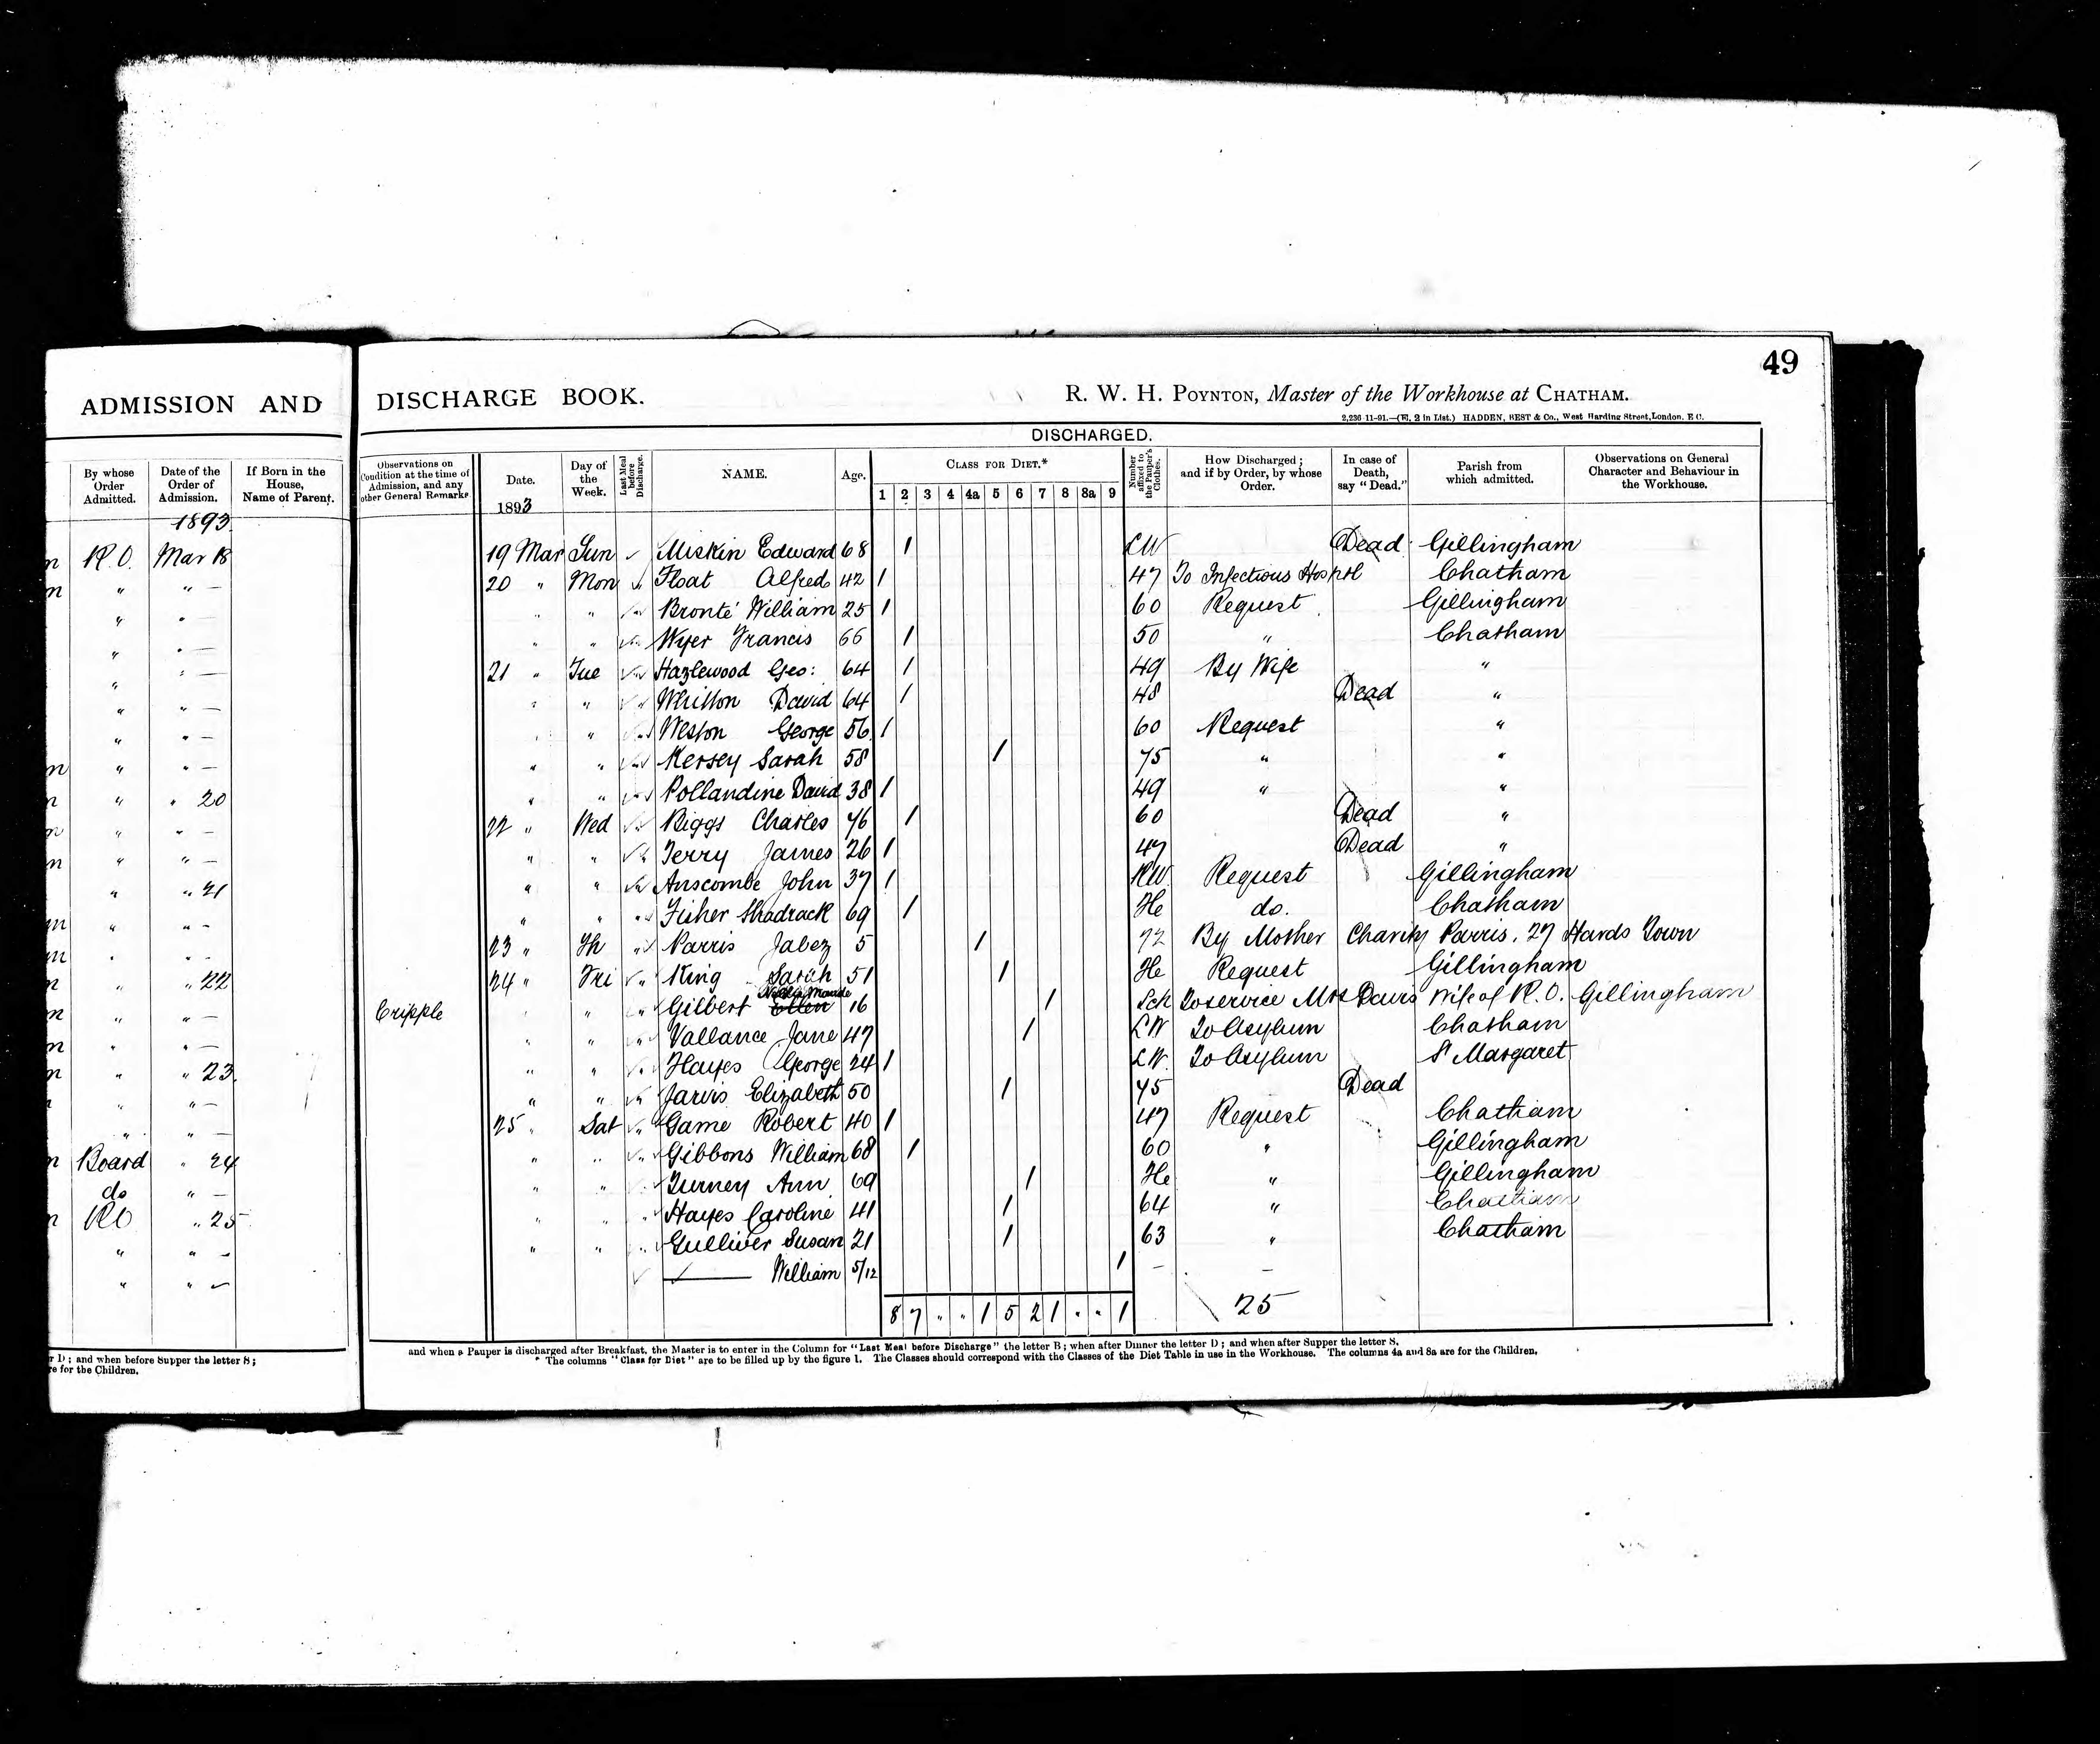 49
ADMISSION AND DISCHARGE BOOK. R. W. H. POYNTON, Master of the Workhouse at CHATHAM.
2,236 11-91.—(E. 2 in List.) HADDEN, BEST & Co., West Harding Street, London. E C.
DISCHARGED.
By whose Order Admitted. Date of the Order of Admission. If Born in the House, Name of Parent. Observations on Condition at the time of Admission, and any other General Remarks Date. Day of the Week. Last Meal before Discharge. NAME. Age. CLASS FOR DIET.* Number affixed to the Pauper's Clothes. How Discharged; and if by Order, by whose Order. In case of Death, say "Dead." Parish from which admitted. Observations on General Character and Behaviour in the Workhouse.
1 2 3 4 4a 5 6 7 8 8a 9
1893 1893
R.O. Mar 18 19 Mar Sun Miskin Edward 68 1 Dead Gillingham
" " — 20 " Mon Float Alfred 42 1 47 To Infectious Hosptl Chatham
" " — " Bronté William 25 1 60 Request Gillingham
" " — " " Wyer Francis 66 1 50 " Chatham
" " — 21 " Tue Hazlewood Geo: 64 1 49 By Wife "
" " — " " Whitton David 64 1 48 Dead "
" " — " Weston George 56 1 60 Request "
" " — " " Kersey Sarah 58 1 75 " "
" " 20 " " Pollandine David 38 1 49 " "
" " — 22 " Wed Biggs Charles 76 1 60 Dead "
" " — " " Terry James 26 1 47 Dead "
" " 21 " " Anscombe John 37 1 RW. Request Gillingham
" " - " " Fisher Shadrack 69 1 He do. Chatham
" " - 23 " Th Parris Jabez 5 1 72 By Mother Charity Parris, 27 Hards Town
" " 22 24 " Fri King Sarah 51 1 He Request Gillingham
" " — Cripple " Gilbert Ellen Maude 16 1 Sch To service Mrs Davis Wife of R.O. Gillingham
" " — " Vallance Jane 47 1 LW To Asylum Chatham
" " 23. " " Hayes George 24 1 LW. To Asylum St Margaret
" " — " " Jarvis Elizabeth 50 1 75 Dead
" " — 25 " Sat Game Robert 40 1 47 Request Chatham
Board " 24 " " Gibbons William 68 1 60 " Gillingham
do " — " " Turney Ann 69 1 He " Gillingham
RO " 25 " " Hayes Caroline 41 1 64 " Chatham
" " - " " Gulliver Susan 21 1 63 " Chatham
" " - — William 5/12 1 - -
8 7 " " 1 5 2 1 " " 1 25
r D; and when before Supper the letter S;
re for the Children.
and when a Pauper is discharged after Breakfast, the Master is to enter in the Column for "Last Meal before Discharge" the letter B; when after Dinner the letter D; and when after Supper the letter S.
* The columns "Class for Diet" are to be filled up by the figure 1. The Classes should correspond with the Classes of the Diet Table in use in the Workhouse. The columns 4a and 8a are for the Children.